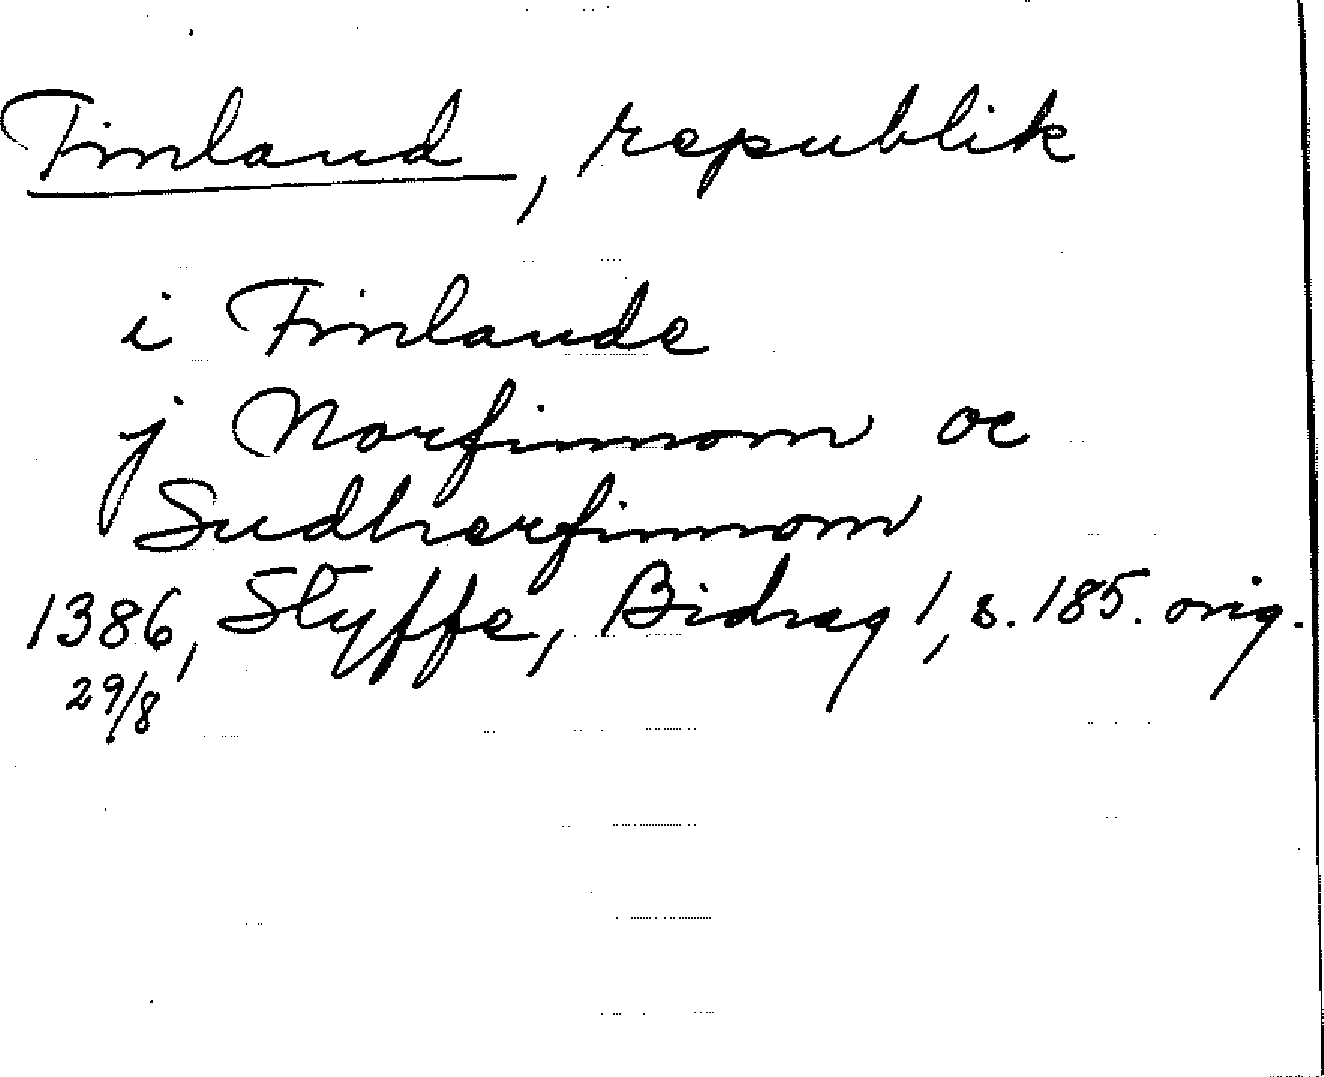 Finland, republik
i Finlande
j Norfinnom oc
Sudherfinnom
1386, Styffe, Bidrag 1, s. 185. orig.
29/8